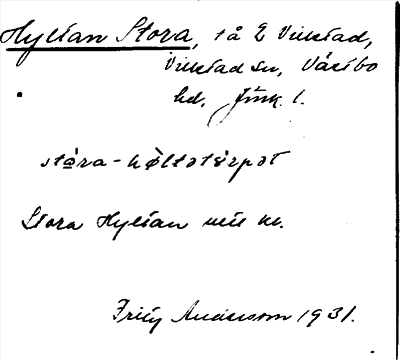 Hyltan Stora, tå E Villstad,
Villstad sn, Västbo
hd, Jönk. l.
stóra-hø̀ltətörpət
Stora Hyltan
Fritz Andersson 1931.